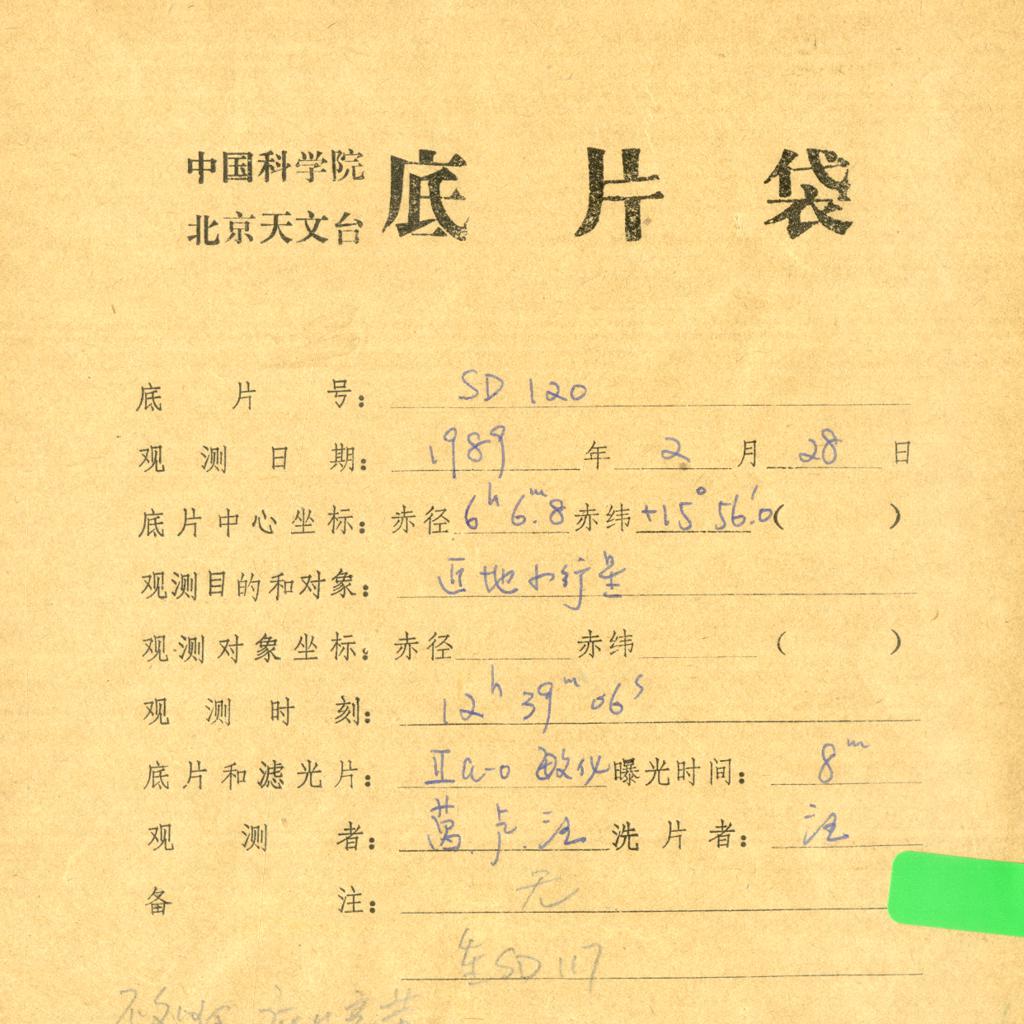 中国科学院
北京天文台
底片袋
底片号： SD 120
观测日期： 1989 年 2 月 28 日
底片中心坐标： 赤径 6h 6m.8 赤纬 +15° 56.'0 ( )
观测目的和对象： 近地小行星
观测对象坐标： 赤径 赤纬 ( )
观测时刻： 12h 39m 06s
底片和滤光片： IIa-0 敏化 曝光时间： 8m
观测者： 萬.卢.汪 洗片者： 汪
备注： 无
在SD 117